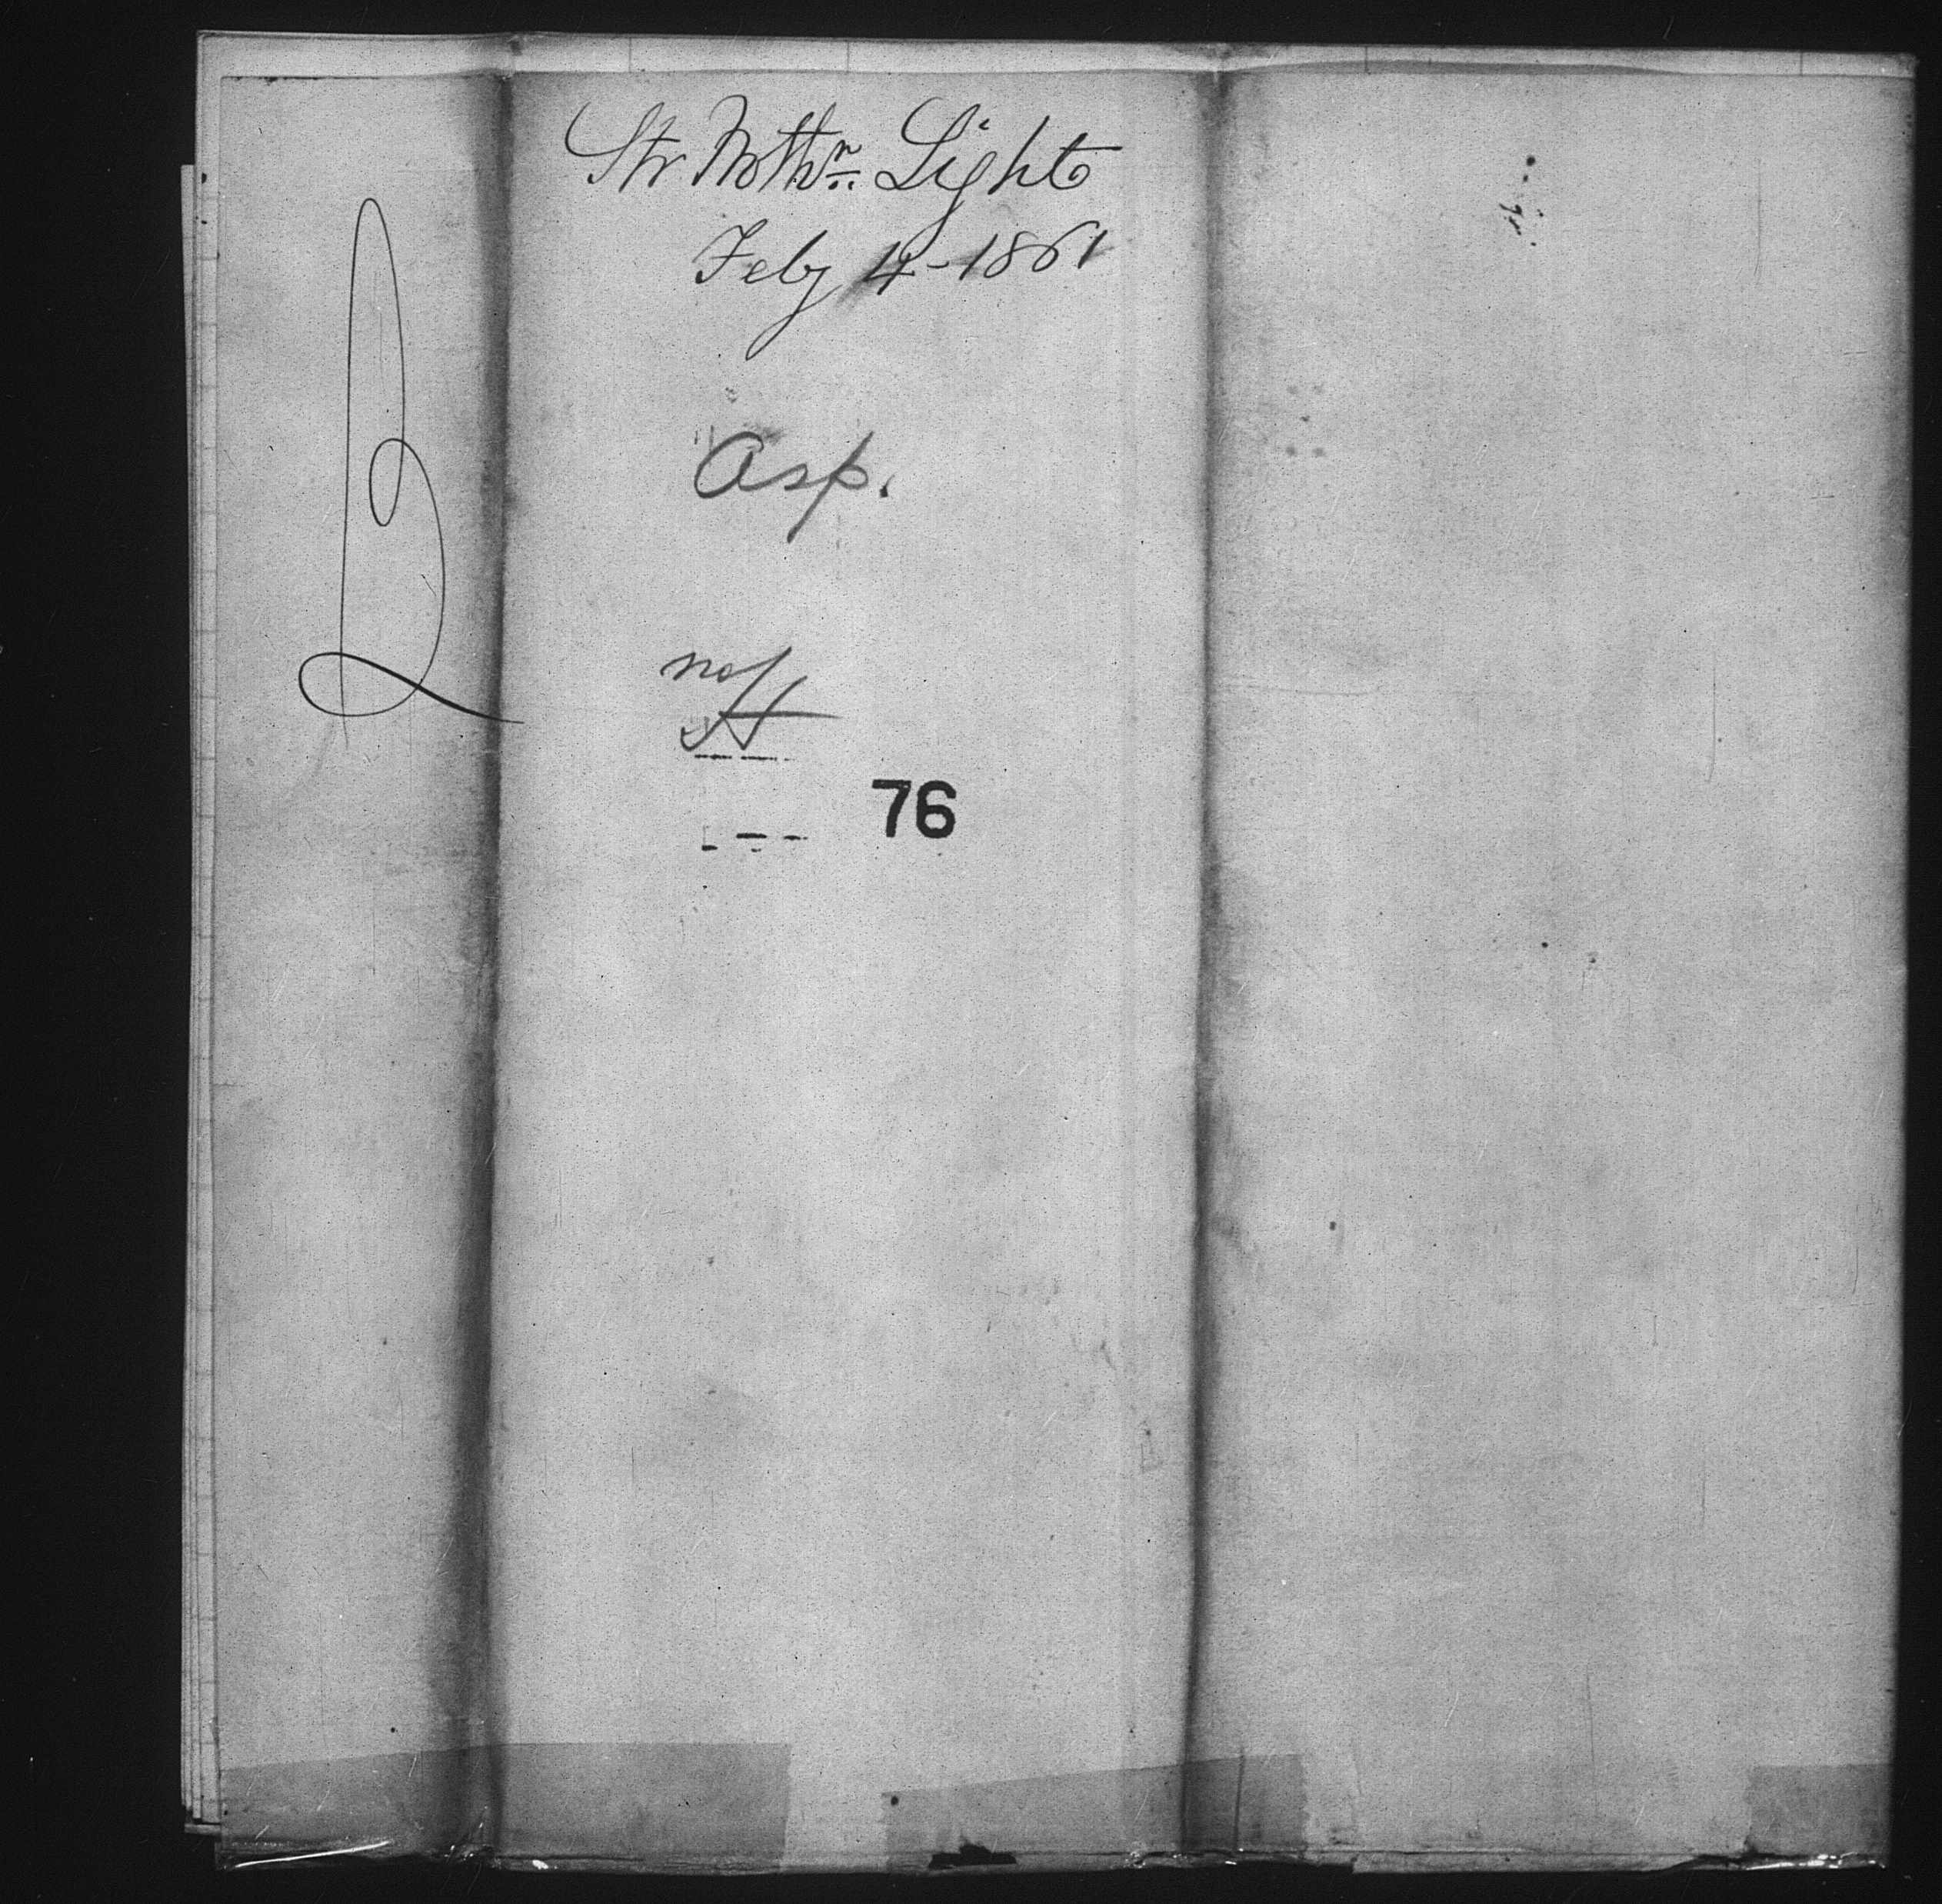 Str Nothn Light
Feby 4-1861
Asp.
76